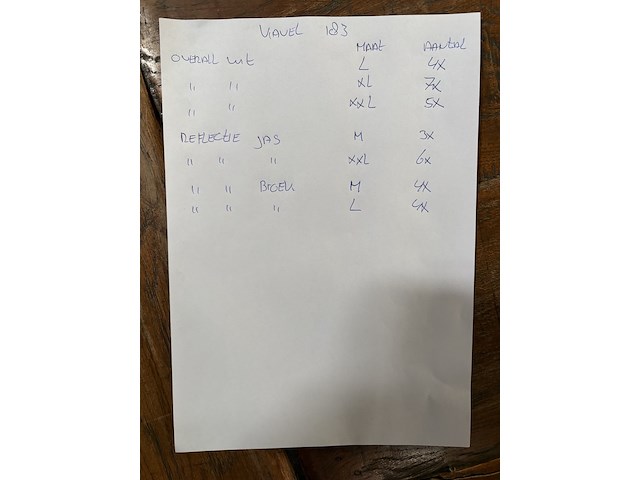 VIAVEL 183
MAAT AANTAL
OVERALL Wit L 4x
" " XL 7x
" " XXL 5x
REFLECTIE JAS M 3x
" " " XXL 6x
" " BROEK M 4x
" " " L 4x